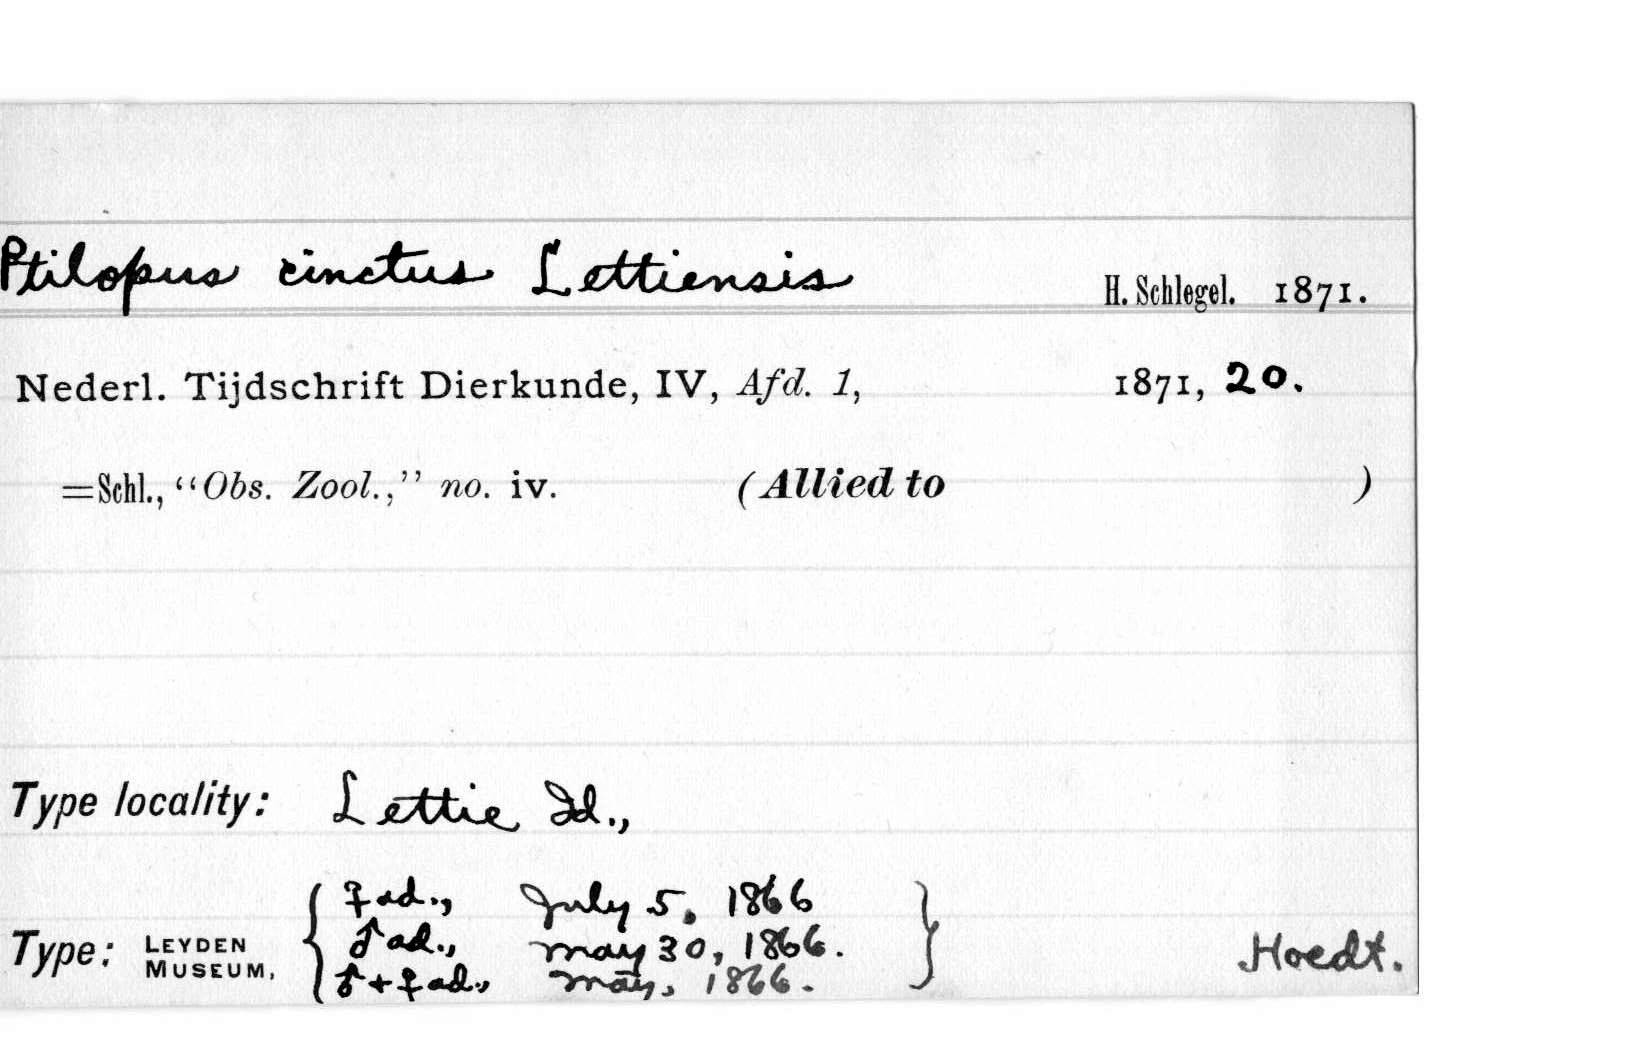 Ptilopus cinctus Lettiensis H. Schlegel. 1871.
Nederl. Tijdschrift Dierkunde, IV, Afd. 1, 1871, 20.
=Schl., “Obs. Zool.,” no. iv. (Allied to )
Type locality: Lettie Id.,
♀ ad., July 5, 1866
Type: LEYDEN MUSEUM, { ♂ ad., May 30, 1866. } Hoedt.
♂ + ♀ ad., May, 1866.